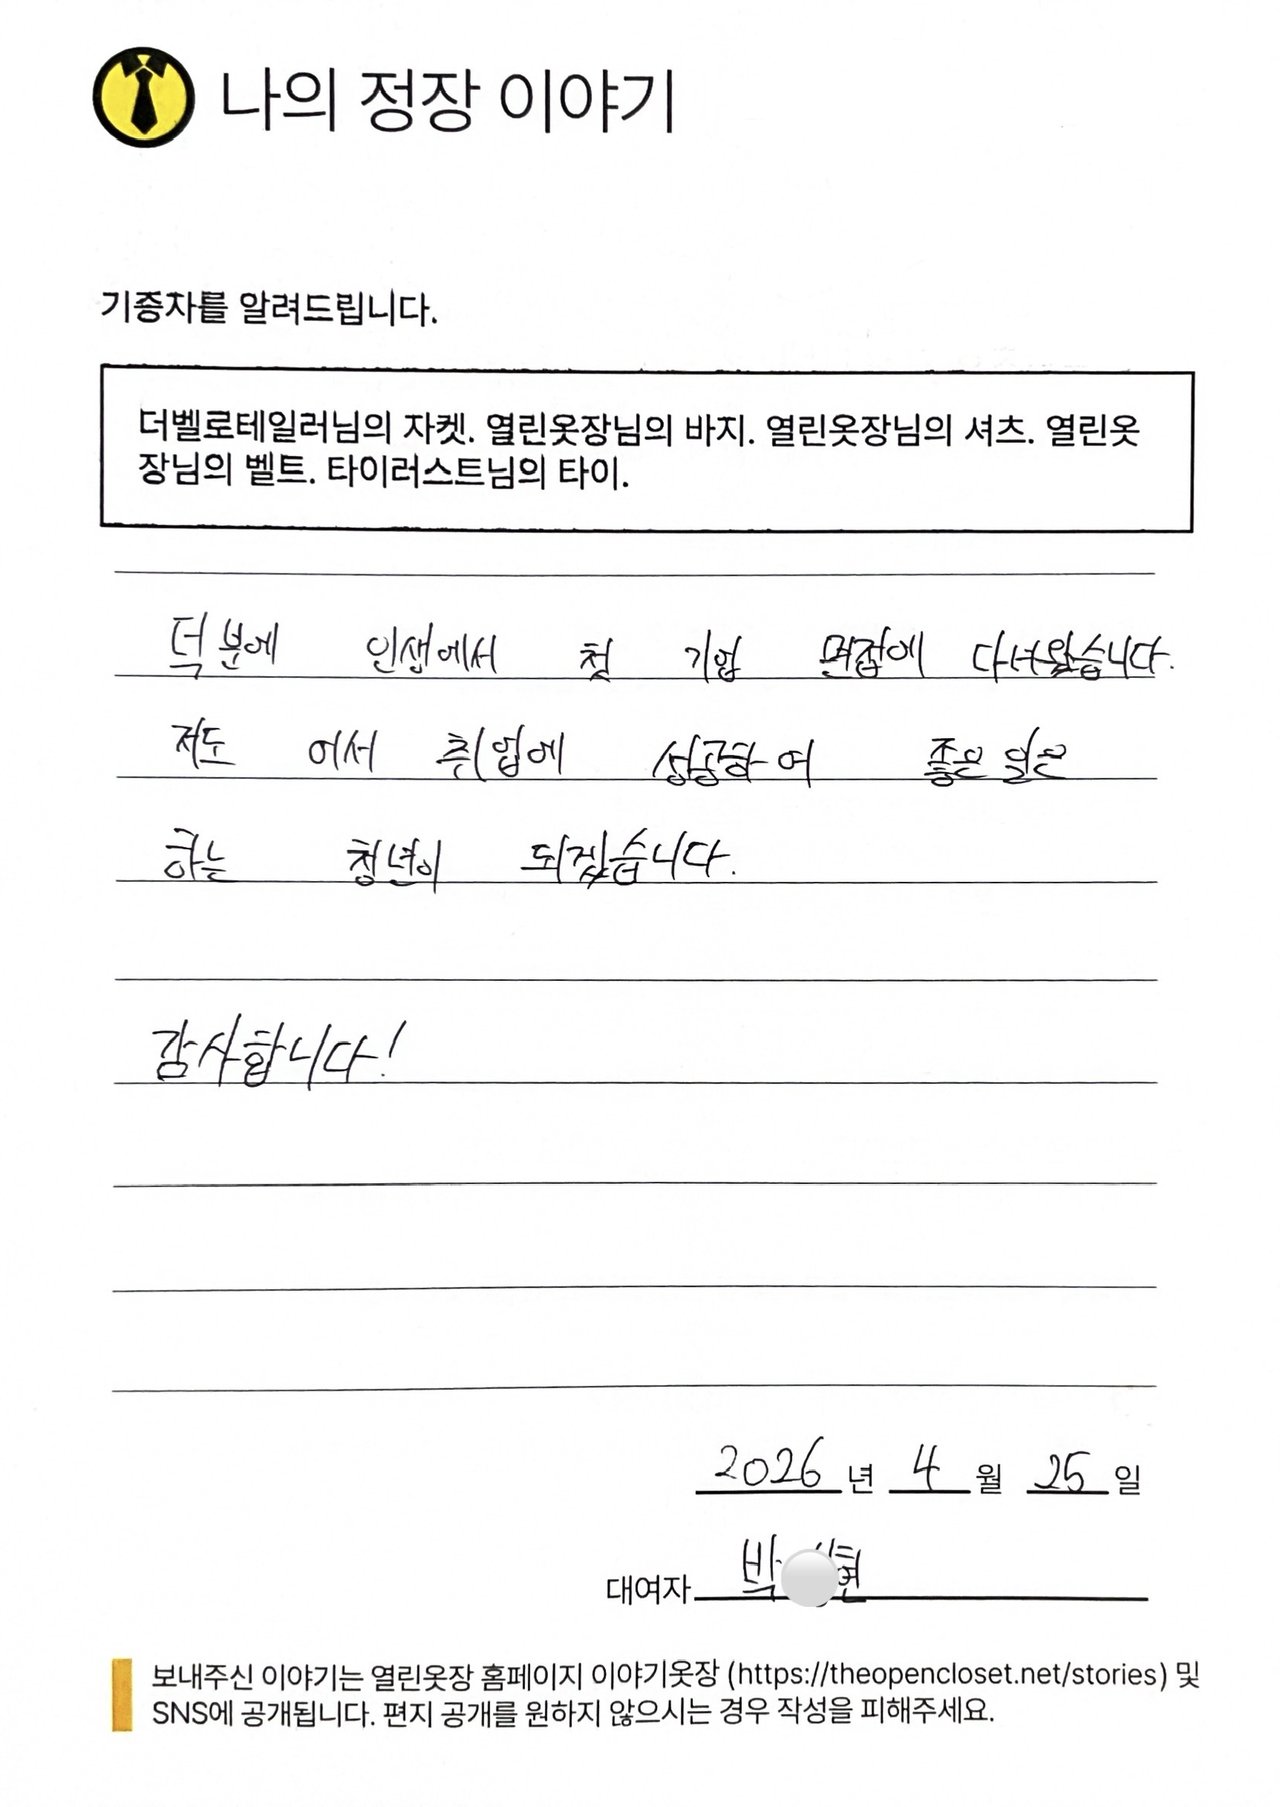 나의 정장 이야기
기증자를 알려드립니다.
더벨로테일러님의 자켓. 열린옷장님의 바지. 열린옷장님의 셔츠. 열린옷
장님의 벨트. 타이러스트님의 타이.
덕분에 인생에서 첫 기업 면접에 다녀왔습니다.
저도 어서 취업에 성공하여 좋은 일은
하는 청년이 되겠습니다.
감사합니다!
2026 년 4 월 25 일
대여자 박 현
보내주신 이야기는 열린옷장 홈페이지 이야기옷장 (https://theopencloset.net/stories) 및
SNS에 공개됩니다. 편지 공개를 원하지 않으시는 경우 작성을 피해주세요.